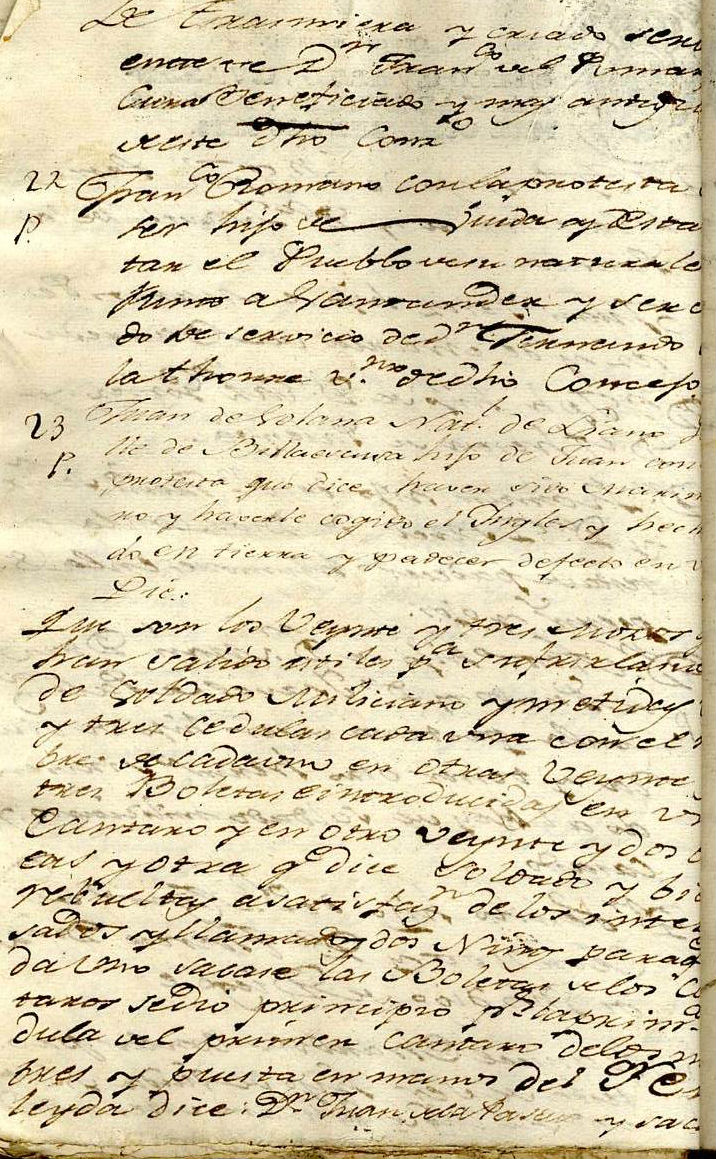 De trasmiera y criado serv
ente de Dn Franco del Roman
Cura Beneficiado y mas antig
de este dho Conzo
22 Franco Romano con la protesta
P. ser hijo de viuda y Esta
tan el Pueblo de su naturale
Junto a Santander y ser c
do de servicio de Dn Fernando
la thorre v.no de dho Concejo
23 Juan de Solana Natl. de Liano
P. lle de Billaescusa hijo de Juan con
protesta que dice haver sido Marin
ro y haverle cogido el Ingles y hech
do en tierra y padecer defecto en
Pie:
Que son los Veynte y tres Mozos
han salido utiles pa sufrir la
de Soldado Miliciano y metidas
y tres Cedulas cada una con el
bre de cada uno en otras Veynte
tres Boletas e introducidas en
Cantaro y en otro Veynte y dos
cas y otra qe dice Soldado y bi
rebueltas a satisfazn de los inter
sados y llamados dos Niños para q
da Uno sacase las Boletas de los Ca
taros se dio principio pr la prim
dula del primer Cantaro de los
bres y puesta en manos del Sr
leyda dice: Dn Juan de la y sac